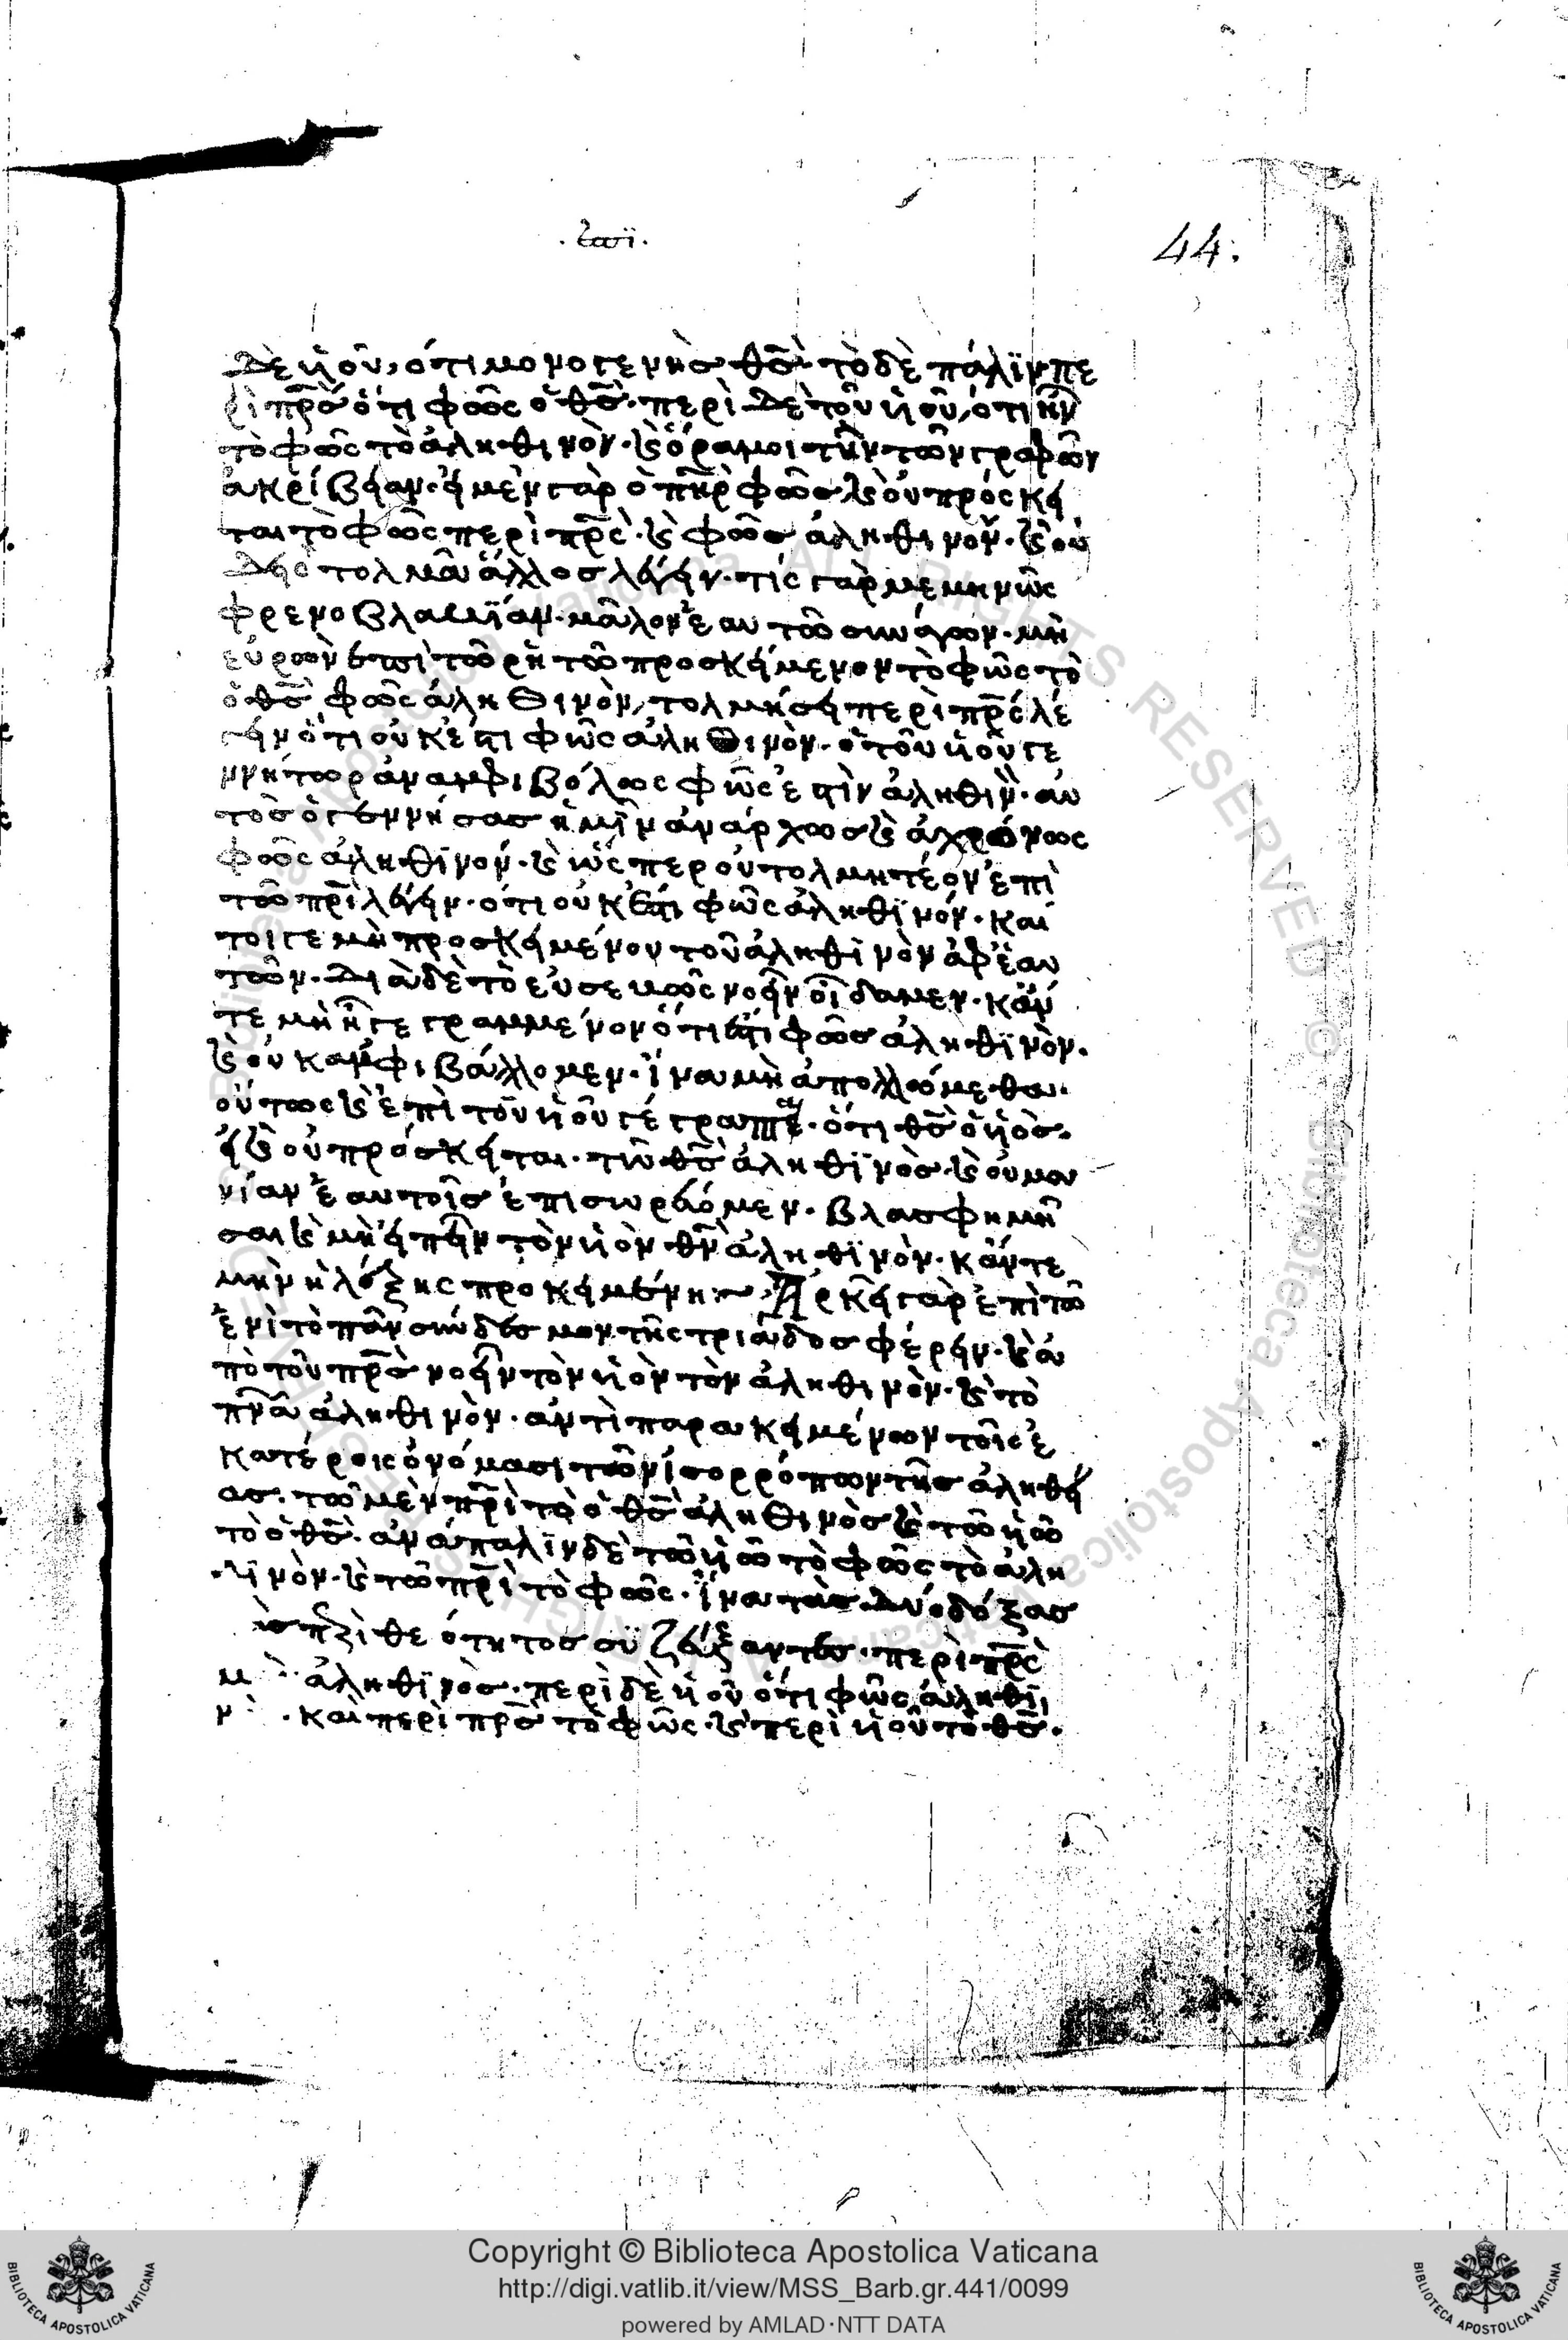 44.
δὲ υἱοῦ, ὅτι μονογενὴς θς̅· τὸ δὲ πάλϊν πε
ρὶ πρ̅ς ὅτι φῶς ὁ θς̅· περὶ δὲ τοῦ υἱοῦ, ὅτι ἦν
τὸ φῶς τὸ ἀληθινὸν· καὶ ὅρα μοι τὴν τῶν γραφῶν
ἀκρίβειαν· εἰ μὲν γὰρ ὁ πη̅ρ φῶς, καὶ οὐ πρόσκει
ται τὸ φῶς περὶ πρ̅ς· καὶ φῶς ἀληθινὸν· καὶ οὐ
δεὶς τολμᾶ ἄλλος λέγειν· τίς γὰρ μεμηνὼς
φρενοβλάβειαν· μᾶλλον ἑαυτῶ συνάγων· μὴ
εὑρὼν ἐπὶ τῶ ρη τῶ προσκείμενον τὸ φῶς τὸ
ὁ θς̅ φῶς ἀληθινὸν, τολμήσει περὶ πρ̅ς λέ
γειν ὅτι οὐκ ἔστι φῶς ἀληθινὸν· ὁ τοῦ υἱοῦ γε
ννήτωρ ἀναμφιβόλως φῶς ἐστὶν ἀληθινὸν· αὐ
τὸς ὁ γεννήσας ἡμῖν ἀνάρχως καὶ ἀχρόνως
φῶς ἀληθϊνόν· καὶ ὥσπερ οὐ τολμητέον ἐπὶ
τῶ πρ̅ὶ λέγειν· ὅτι οὐκ ἔστι φῶς ἀληθϊνόν· καί
τοιγε μὴ προσκειμένου τοῦ ἀληθϊνὸν ἀφ' ἑαυ
τῶν· διὰ δὲ τὸ εὐσεβῶς νοεῖν οἴδαμεν· κἄν
τε μὴ ἦ γεγραμμένον ὅτι ἐστι φῶς ἀληθϊνὸν·
καὶ οὐκ ἀμφιβάλλομεν· ἵνα μὴ ἀπολλώμεθα·
οὕτως καὶ ἐπὶ τοῦ υἱοῦ γέγραπται· ὅτι θς̅ ὁ υἱὸς·
εἰ καὶ οὐ πρόσκειται· τῶ θς̅ ἀληθϊνὸς· καὶ οὐ μα
νίαν ἑαυτοῖς ἐπισωρεύομεν· βλασφημῆ
σαι καὶ μὴ εἰπεῖν τὸν υἱὸν θν̅ ἀληθϊνὸν· κἄντε
μὴν ἡ λέξης προκειμένη· Ἀρκεῖ γὰρ ἐπὶ τῶ
ἑνὶ τὸ πᾶν σύνδεσμον τῆς τριάδος φέρειν· καὶ ἀ
πὸ τοῦ πρ̅ς νοεῖν τὸν υἱὸν τὸν ἀληθινὸν· καὶ τὸ
πν̅α ἀληθινὸν· ἀντιπαρακειμένων τοῖς ἑ
κατέροις ὀνόμασι τῶν ἰσορρόπων τῆς ἀληθεί
ας· τῶ μὲν πρ̅ὶ τὸ ὁ θς̅ ἀληθινὸς καὶ τῶ υἱῶ
τὸ ὁ θς̅· ἀνάπαλϊν δὲ τῶ υἱῶ τὸ φῶς τὸ ἀλη
θϊνὸν· καὶ τῶ πρ̅ὶ τὸ φῶς· ἵνα τὰς δύο δόξας
θεότητος συζεύξαντες· περὶ πρ̅ς
ἀληθϊνὸς· περὶ δὲ υἱοῦ ὅτι φῶς ἀληθϊ
ν · καὶ περὶ πρ̅ς τὸ φῶς· καὶ περὶ υἱοῦ τὸ θς̅·
Copyright © Biblioteca Apostolica Vaticana
http://digi.vatlib.it/view/MSS_Barb.gr.441/0099
powered by AMLAD·NTT DATA